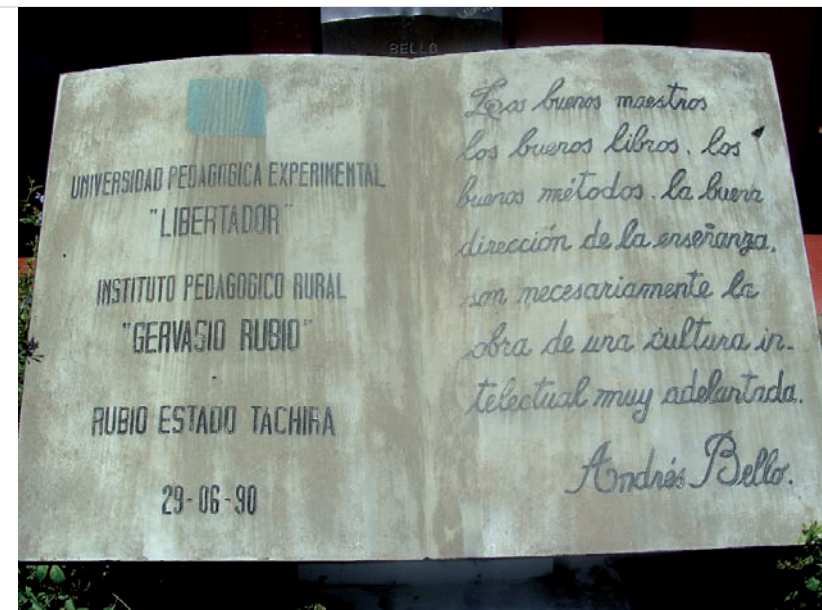 BELLO
UNIVERSIDAD PEDAGOGICA EXPERIMENTAL
"LIBERTADOR"
INSTITUTO PEDAGOGICO RURAL
"GERVASIO RUBIO"
RUBIO ESTADO TACHIRA
29-06-90
Los buenos maestros
los buenos libros, los
buenos métodos, la buena
dirección de la enseñanza,
son necesariamente la
obra de una cultura in-
telectual muy adelantada.
Andrés Bello.